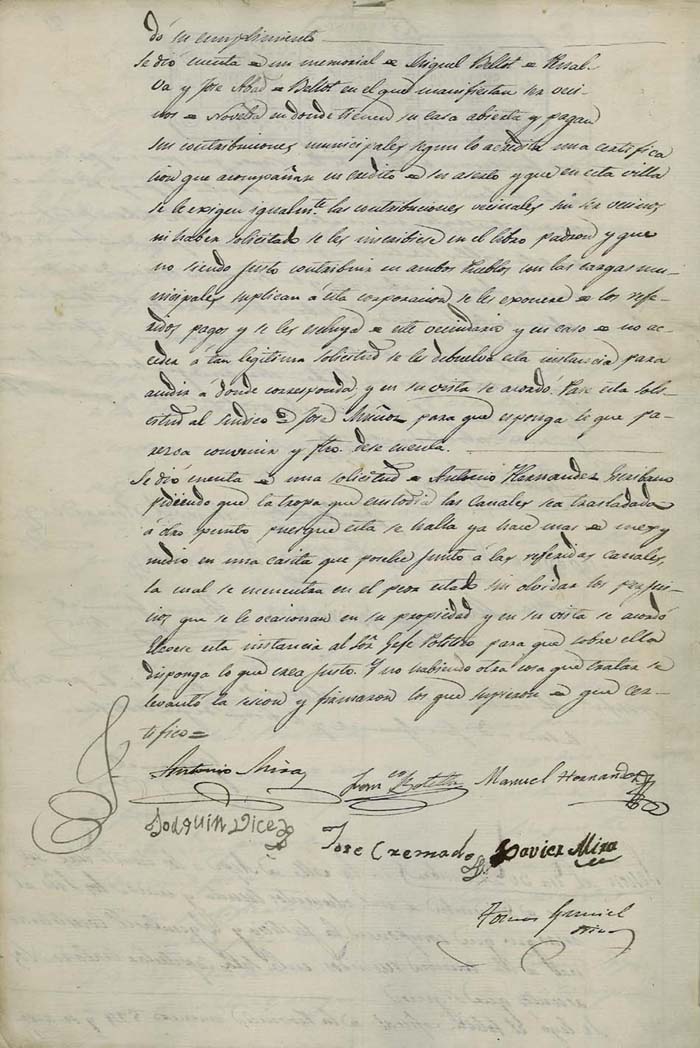 dó su cumplimiento
Se dió cuenta de un memorial de Miguel Bellot de Penal-
va y Jose Abad de Bellot en el que manifiestan ser veci-
nos de Novelda en donde tienen su casa abierta y pagan
sus contribuciones municipales segun lo acredita una certifica
cion que acompañan en credito de su aserto y que en esta villa
se le exigen igualmte. las contribuciones vecinales sin ser vecinos
ni haber solicitado se les inscribiese en el libro padron y que
no siendo justo contribuir en ambos Pueblos con las cargas mu-
nicipales suplican á esta corporacion se les exonere de los refe-
ridos pagos y se les escluya de este vecindario y en caso de no ac-
ceder á tan legitima solicitud se les debuelva esta instancia para
acudir á donde corresponda y en su vista se acordó: Pase esta soli-
citud al sindico D. Jose Muñoz para que esponga lo que pa-
rezca convenir y fho. dese cuenta.
Se dió cuenta de una solicitud de Antonio Hernandez Escribano
pidiendo que la tropa que custodia los Canales sea trasladada
á otro punto puesque esta se halla ya hace mas de mes y
medio en una casita que posehe junto á las referidas canales,
la cual se encuentra en el peor estado sin olvidar los perjui-
cios que se le ocasionan en su propiedad y en su vista se acordó
Elevese esta instancia al Sor. Gefe Politico para que sobre ella
disponga lo que crea justo. Y no habiendo otra cosa que tratar se
levantó la sesion y firmaron los que supieron de que cer-
tifico=
Antonio Mira
Franco Botella
Manuel Hernandez
Joaquin Dicez
Jose Cremades
Xavier Mira
Tomas